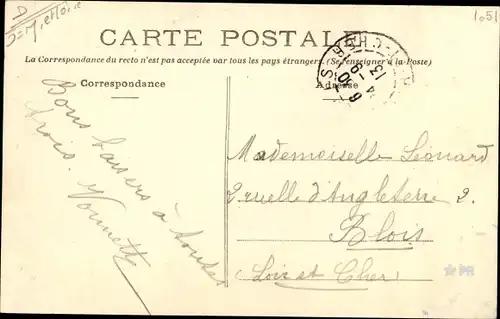 1051
CARTE POSTALE
La Correspondance du recto n'est pas acceptée par tous les pays étrangers. (Se renseigner à la Poste)
Correspondance
Adresse
Bons baisers à toutes
trois.
Yonnette
Mademoiselle Léonard
2 ruelle d'Angleterre 2.
Blois
Loir et Cher
PR